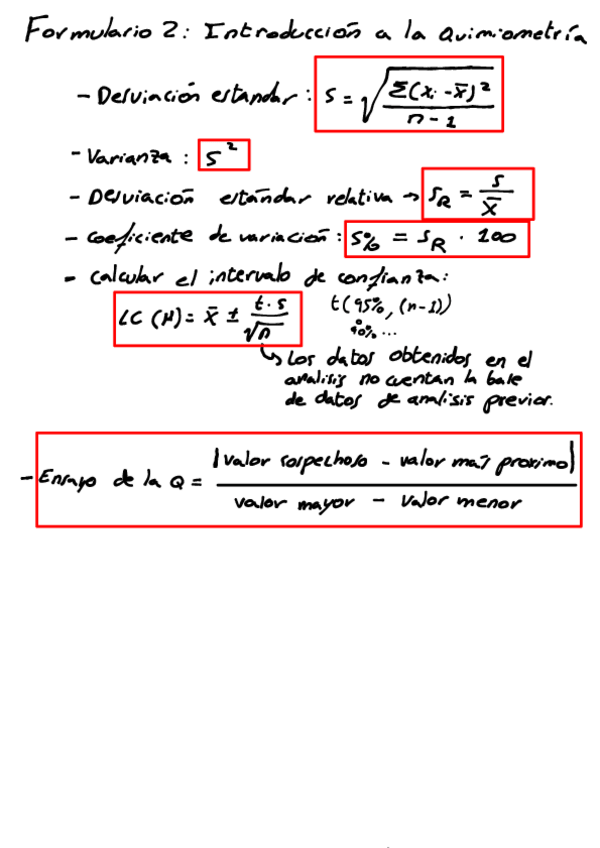 Formulario 2: Introducción a la Quimiometría
- Desviación estandar: S = √(Σ(xi - x̄)² / n - 1)
- Varianza : S²
- Desviación estándar relativa → SR = S / x̄
- coeficiente de variación: S% = SR · 100
- Calcular el intervalo de confianza:
LC (μ) = x̄ ± t · s / √n t(95%, (n-1))
90% ...
Los datos obtenidos en el
analisis no cuentan la base
de datos de analisis previos.
- Ensayo de la Q = |valor sospechoso - valor más proximo| / valor mayor - valor menor